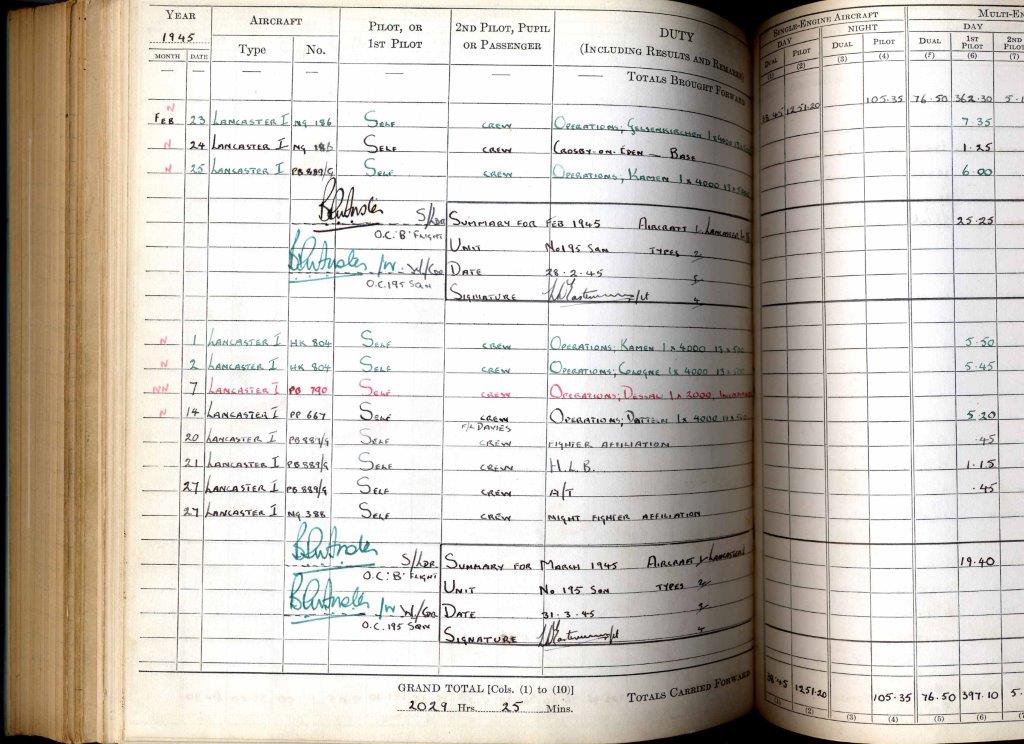 YEAR AIRCRAFT PILOT, OR 1ST PILOT 2ND PILOT, PUPIL OR PASSENGER DUTY (INCLUDING RESULTS AND REMARKS) SINGLE-ENGINE AIRCRAFT MULTI-EN
1945 DAY NIGHT DAY
MONTH DATE Type No. DUAL PILOT DUAL PILOT DUAL 1ST PILOT 2ND
(1) (2) (3) (4) (5) (6) (7)
— — — — — — — TOTALS BROUGHT FORWARD
38.45 1251.20 105.35 76.50 362.30 5.1
N
FEB 23 LANCASTER I NG 186 SELF CREW OPERATIONS; GELSENKIRCHEN 1x4000 7.35
N 24 LANCASTER I NG 186 SELF CREW CROSBY-ON-EDEN — BASE 1.25
N 25 LANCASTER I PB 889/G SELF CREW OPERATIONS, KAMEN 1x4000 13x500 6.00
S/LDR SUMMARY FOR FEB 1945 AIRCRAFT 1. LANCASTER 25.25
O.C. 'B' FLIGHT
UNIT No 195 SQN TYPES 2
W/CDR DATE 28.2.45 3
O.C. 195 SQN
SIGNATURE 4
N 1 LANCASTER I HK 804 SELF CREW OPERATIONS; KAMEN 1x4000 13x500 5.50
N 2 LANCASTER I HK 804 SELF CREW OPERATIONS; COLOGNE 1x4000 13x500 5.45
NN 7 LANCASTER I PB 790 SELF CREW OPERATIONS; DESSAU 1x2000,
N 14 LANCASTER I PP 667 SELF CREW OPERATIONS; DATTELN 1x4000 5.20
F/L DAVIES
20 LANCASTER I PB 889/G SELF CREW FIGHTER AFFILIATION .45
21 LANCASTER I PB 889/G SELF CREW H.L.B. 1.15
27 LANCASTER I PB 889/G SELF CREW A/T .45
27 LANCASTER I NG 388 SELF CREW NIGHT FIGHTER AFFILIATION
S/LDR SUMMARY FOR MARCH 1945 AIRCRAFT 1. LANCASTER I 19.40
O.C. 'B' FLIGHT
UNIT No 195 SQN TYPES 2
W/CDR DATE 31.3.45 3
O.C. 195 SQN
SIGNATURE 4
GRAND TOTAL [Cols. (1) to (10)] TOTALS CARRIED FORWARD
2029 Hrs. 25 Mins.
38.45 1251.20 105.35 76.50 397.10 5.
(1) (2) (3) (4) (5) (6) (7)